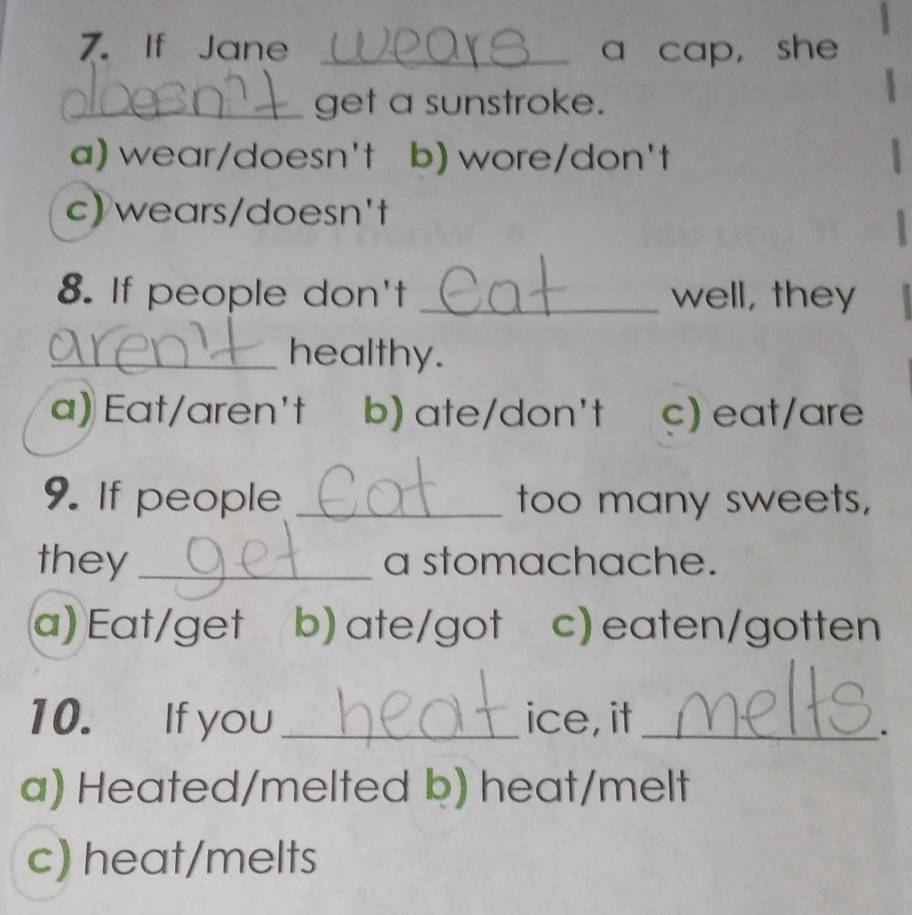 7. If Jane wears a cap, she
doesn't get a sunstroke.
a) wear/doesn't b) wore/don't
c) wears/doesn't
8. If people don't eat well, they
aren't healthy.
a) Eat/aren't b) ate/don't c) eat/are
9. If people Eat too many sweets,
they get a stomachache.
a) Eat/get b) ate/got c) eaten/gotten
10. If you heat ice, it melts.
a) Heated/melted b) heat/melt
c) heat/melts